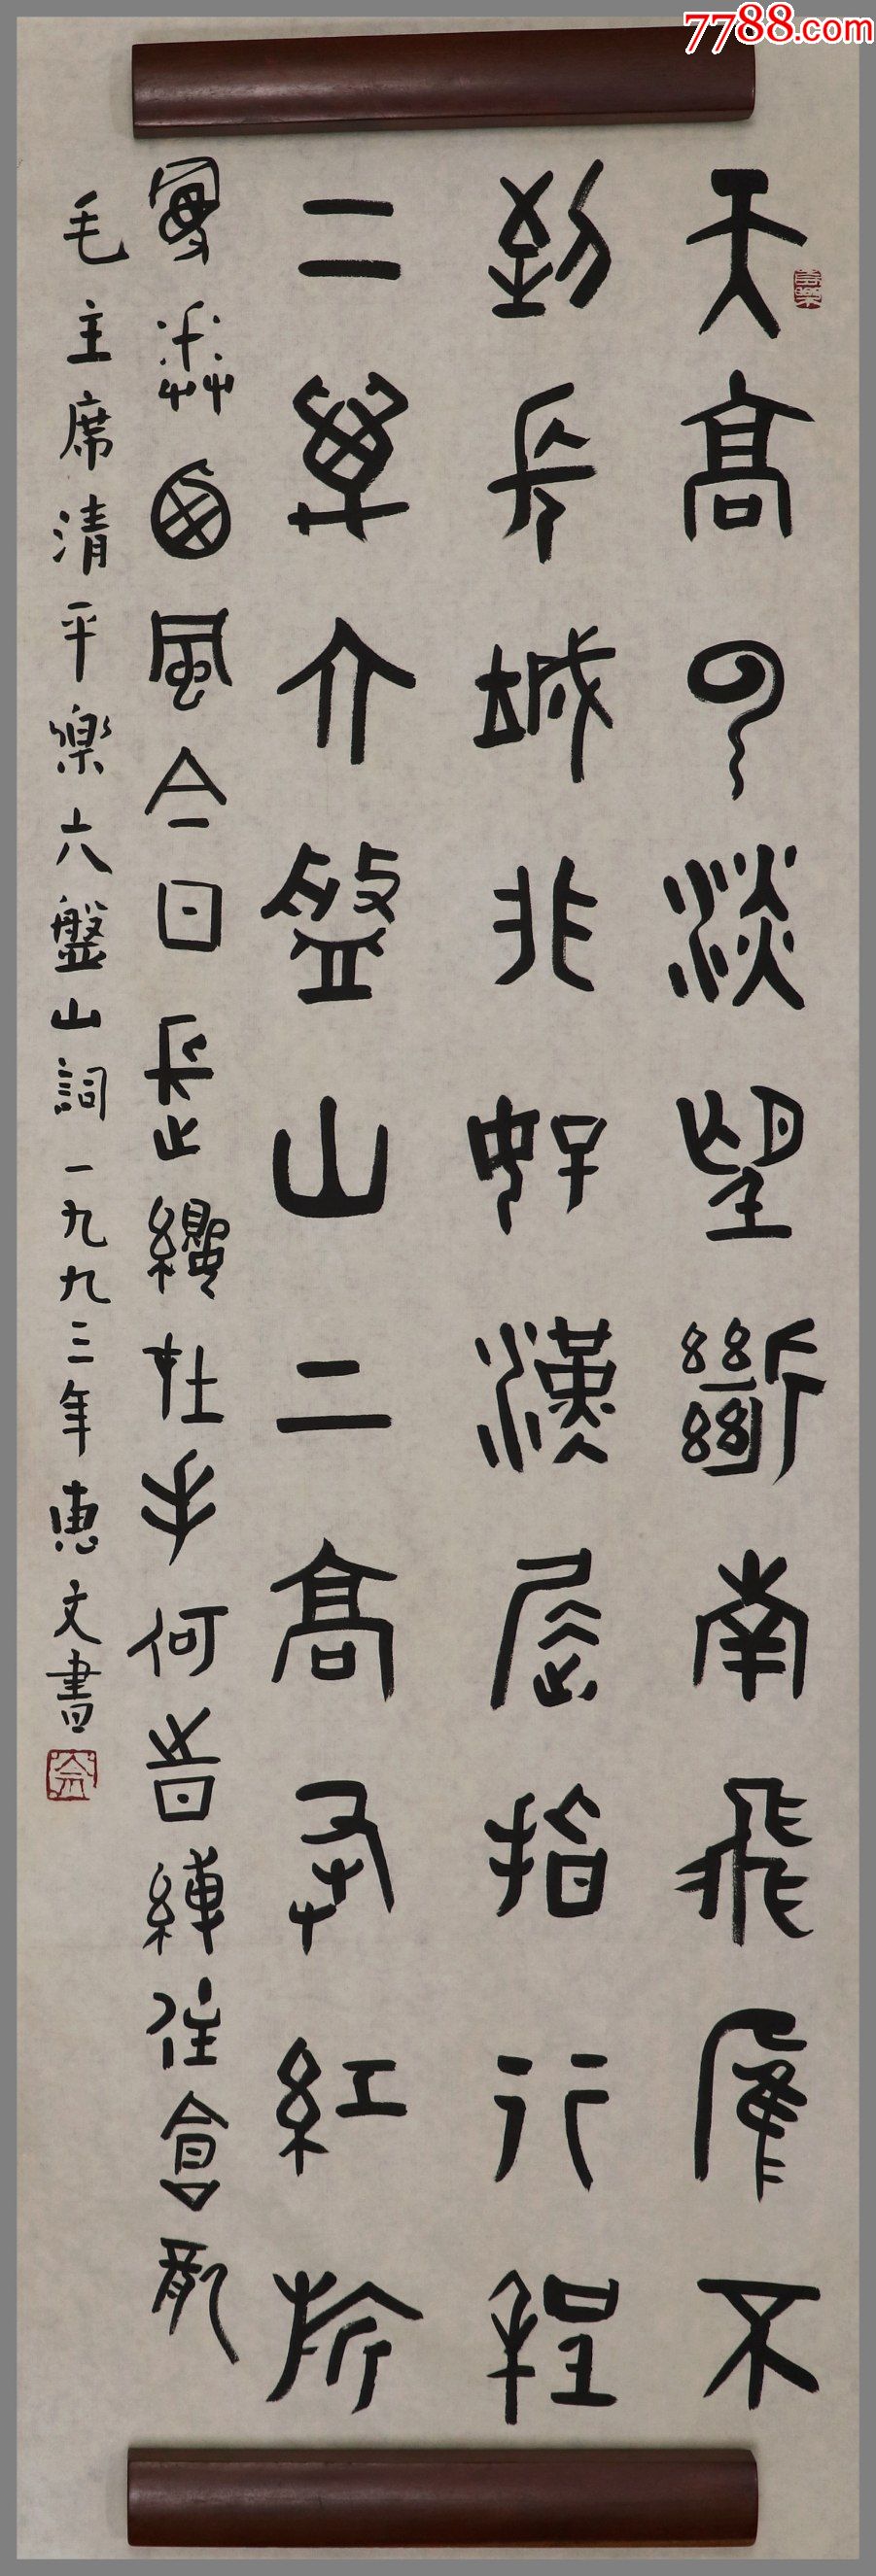 7788.com
天高雲淡望斷南飛雁不
到長城非好漢屈指行程
二萬六盤山上高峰紅旂
漫捲西風今日長纓在手何時縛住蒼龍
毛主席清平樂六盤山詞一九九三年惠文書